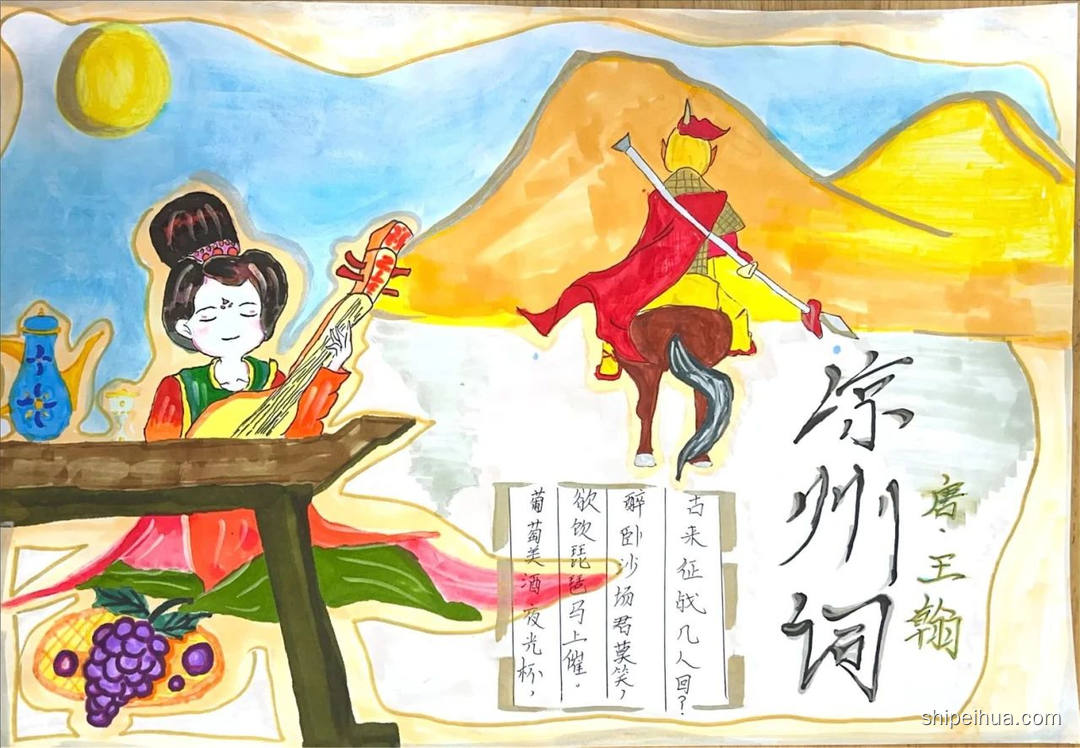 凉州词
唐·王翰
葡萄美酒夜光杯，
欲饮琵琶马上催。
醉卧沙场君莫笑，
古来征战几人回？
shipeihua.com